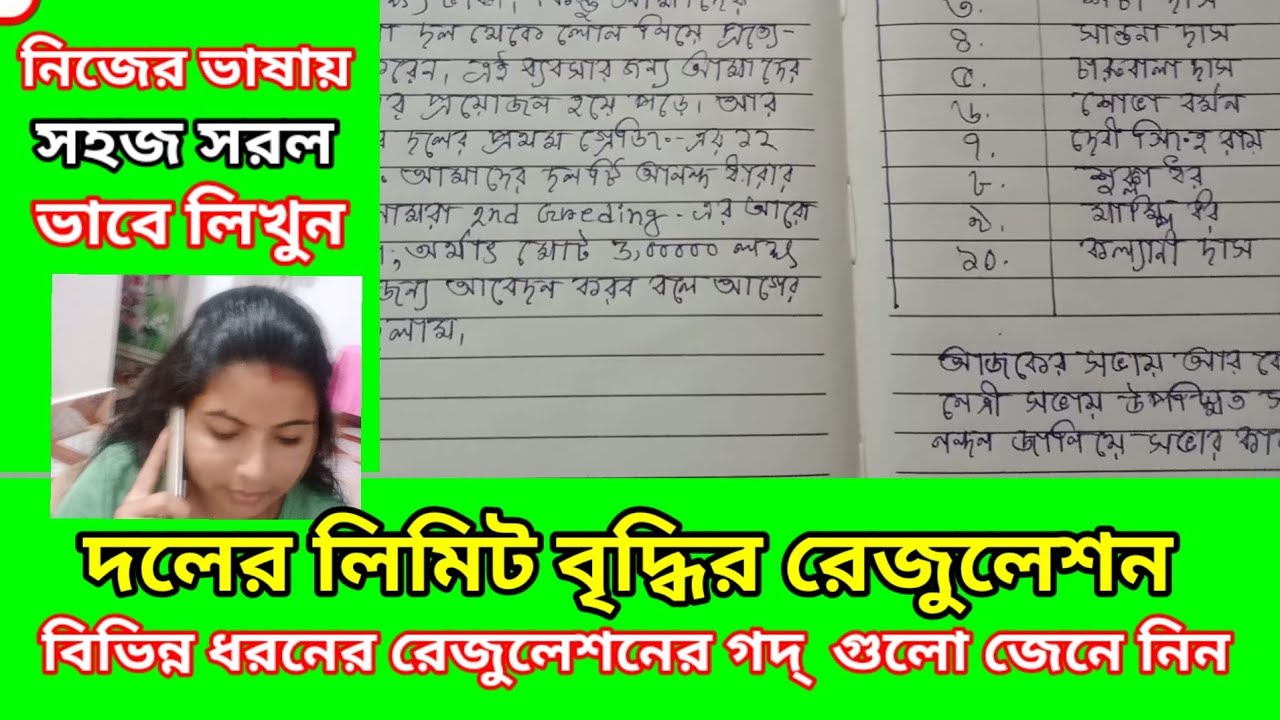 নিজের ভাষায়
সহজ সরল
ভাবে লিখুন
দল থেকে লোন নিয়ে প্রত্যে-
করেন, এই ব্যবসার জন্য আমাদের
প্রয়োজন হয়ে পড়ে। আর
দলের প্রথম গ্রেডিং-এর ২২
আমাদের দলটি আনন্দ ধারার
আমরা 2nd Greeding-এর আরো
অর্থাৎ মোট ৩,০০০০০ লক্ষ
জন্য আবেদন করব বলে আগের
লাম,
৩.
৪. সান্তনা দাস
৫. চারুবালা দাস
৬. শোভা বর্মন
৭. দেবী সিংহ রায়
৮. শুক্লা ধর
৯. ধর
১০. কল্যানী দাস
আজকের সভায় আর
নেত্রী সভায় উপস্থিত
নন্দন জানিয়ে সভার
দলের লিমিট বৃদ্ধির রেজুলেশন
বিভিন্ন ধরনের রেজুলেশনের গদ্ গুলো জেনে নিন